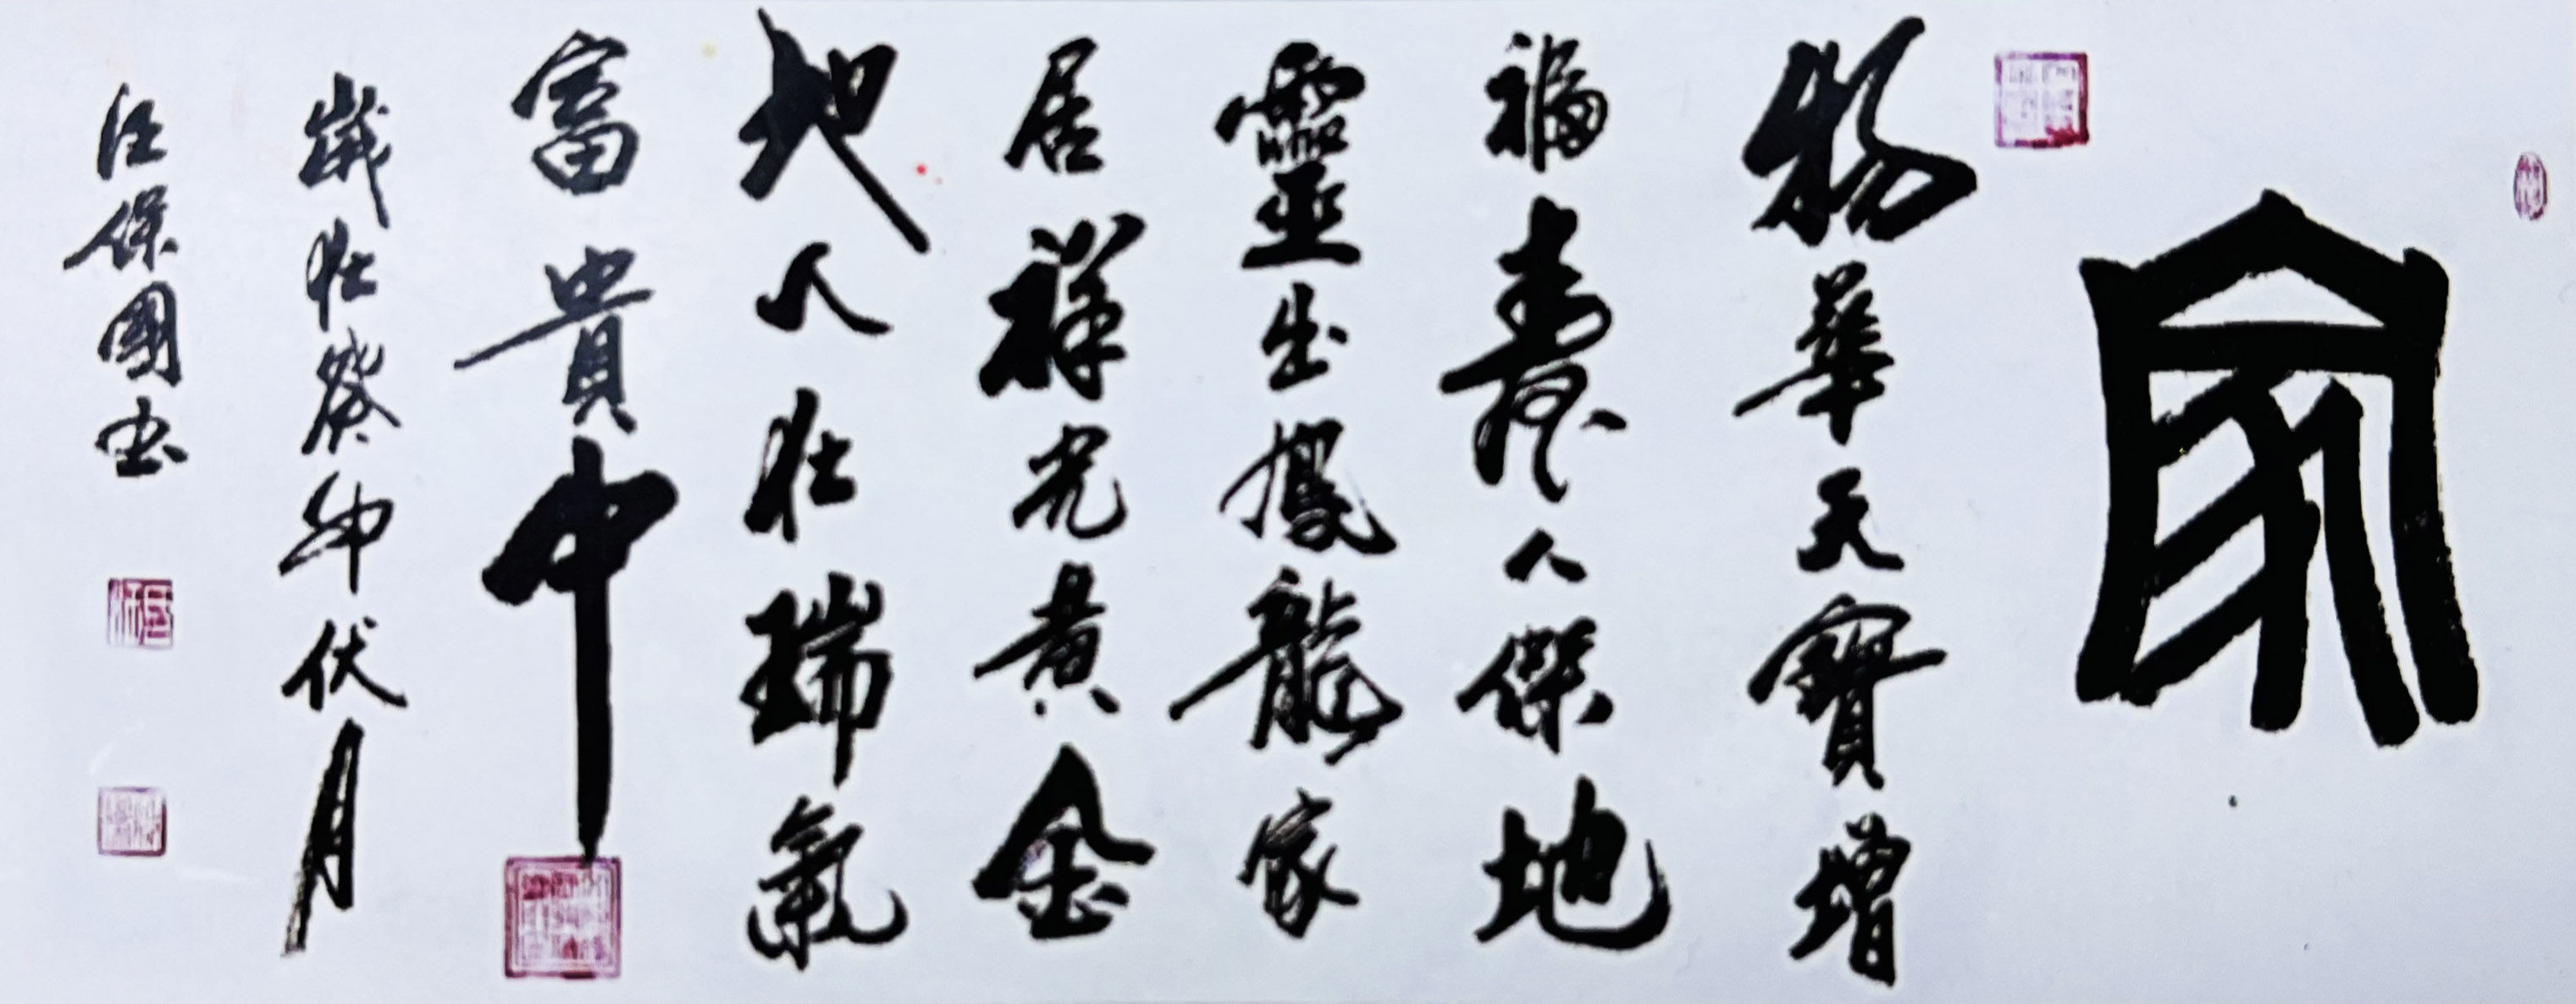 家
物華天寶增
福壽人傑地
靈出鳳龍家
居祥光黃金
地人壯瑞氣
富貴中
歲壯癸卯伏月
汪保國書